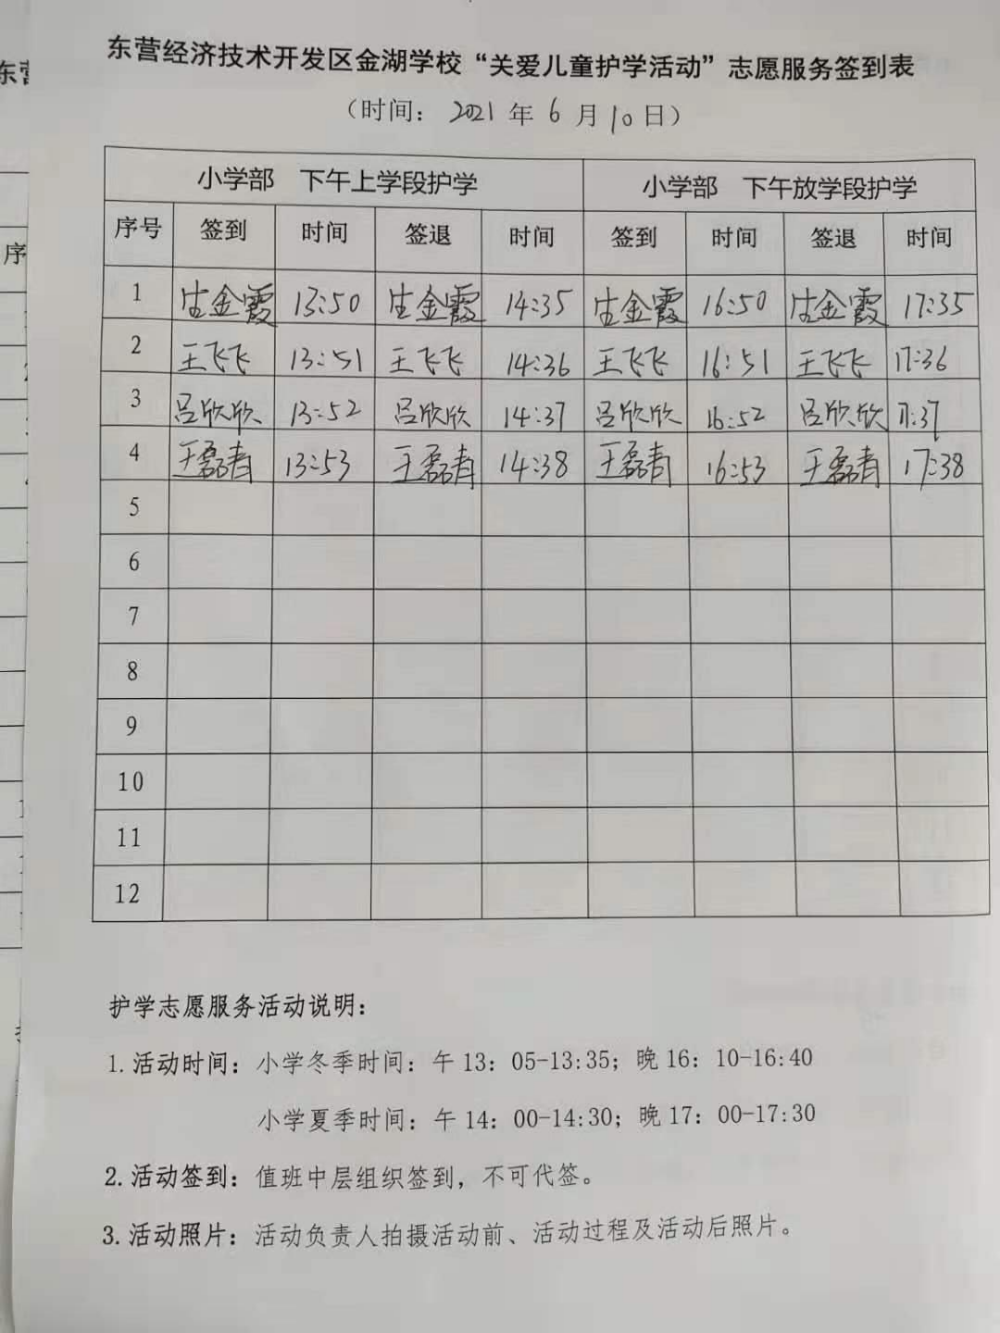 东营经济技术开发区金湖学校“关爱儿童护学活动”志愿服务签到表
（时间： 2021 年 6 月 10 日）
小学部 下午上学段护学 小学部 下午放学段护学
序号 签到 时间 签退 时间 签到 时间 签退 时间
1 金霞 13:50 金霞 14:35 金霞 16:50 金霞 17:35
2 王飞飞 13:51 王飞飞 14:36 王飞飞 16:51 王飞飞 17:36
3 吕欣欣 13:52 吕欣欣 14:37 吕欣欣 16:52 吕欣欣 17:37
4 王磊青 13:53 王磊青 14:38 王磊青 16:53 王磊青 17:38
5
6
7
8
9
10
11
12
护学志愿服务活动说明：
1.活动时间：小学冬季时间：午 13：05-13:35；晚 16：10-16:40
小学夏季时间：午 14：00-14:30；晚 17：00-17:30
2.活动签到：值班中层组织签到，不可代签。
3.活动照片：活动负责人拍摄活动前、活动过程及活动后照片。